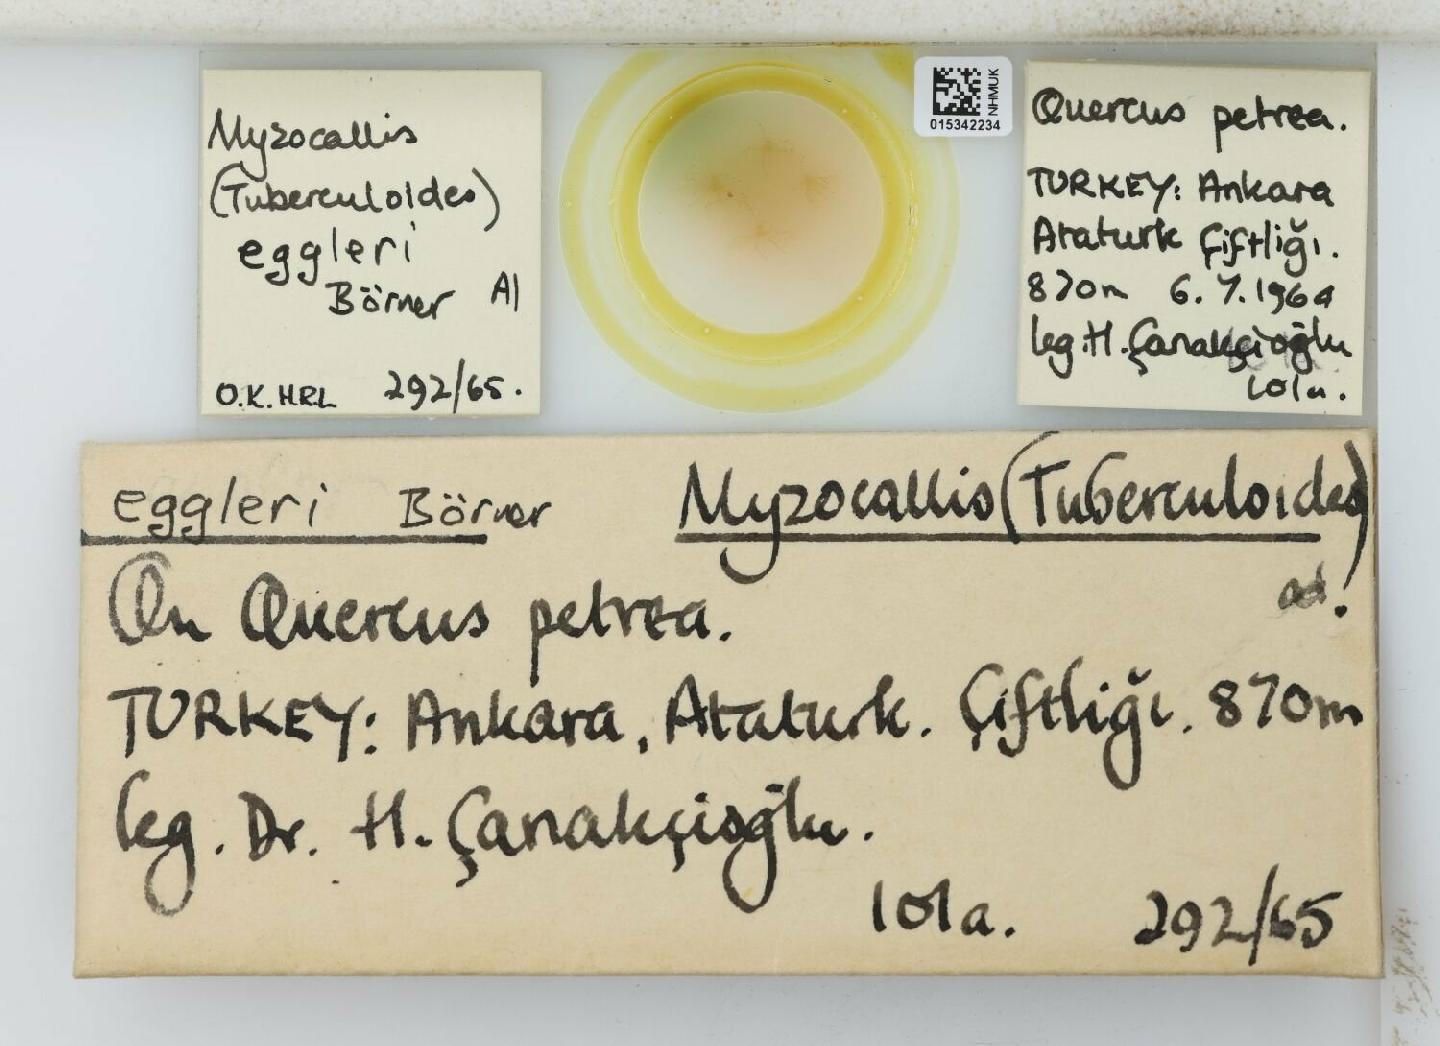 Myzocallis
(Tuberculoides)
eggleri
Börner Al
O.K. HRL 292/65.
NHMUK
015342234
Quercus petrea.
TURKEY: Ankara
Ataturk Çiftliği.
870m 6.7.1964
leg. H. Çanakçioğlu
101a.
eggleri Börner Myzocallis (Tuberculoides)
al.
On Quercus petrea.
TURKEY: Ankara, Ataturk. Çiftliği. 870m
leg. Dr. H. Çanakçioğlu.
101a. 292/65